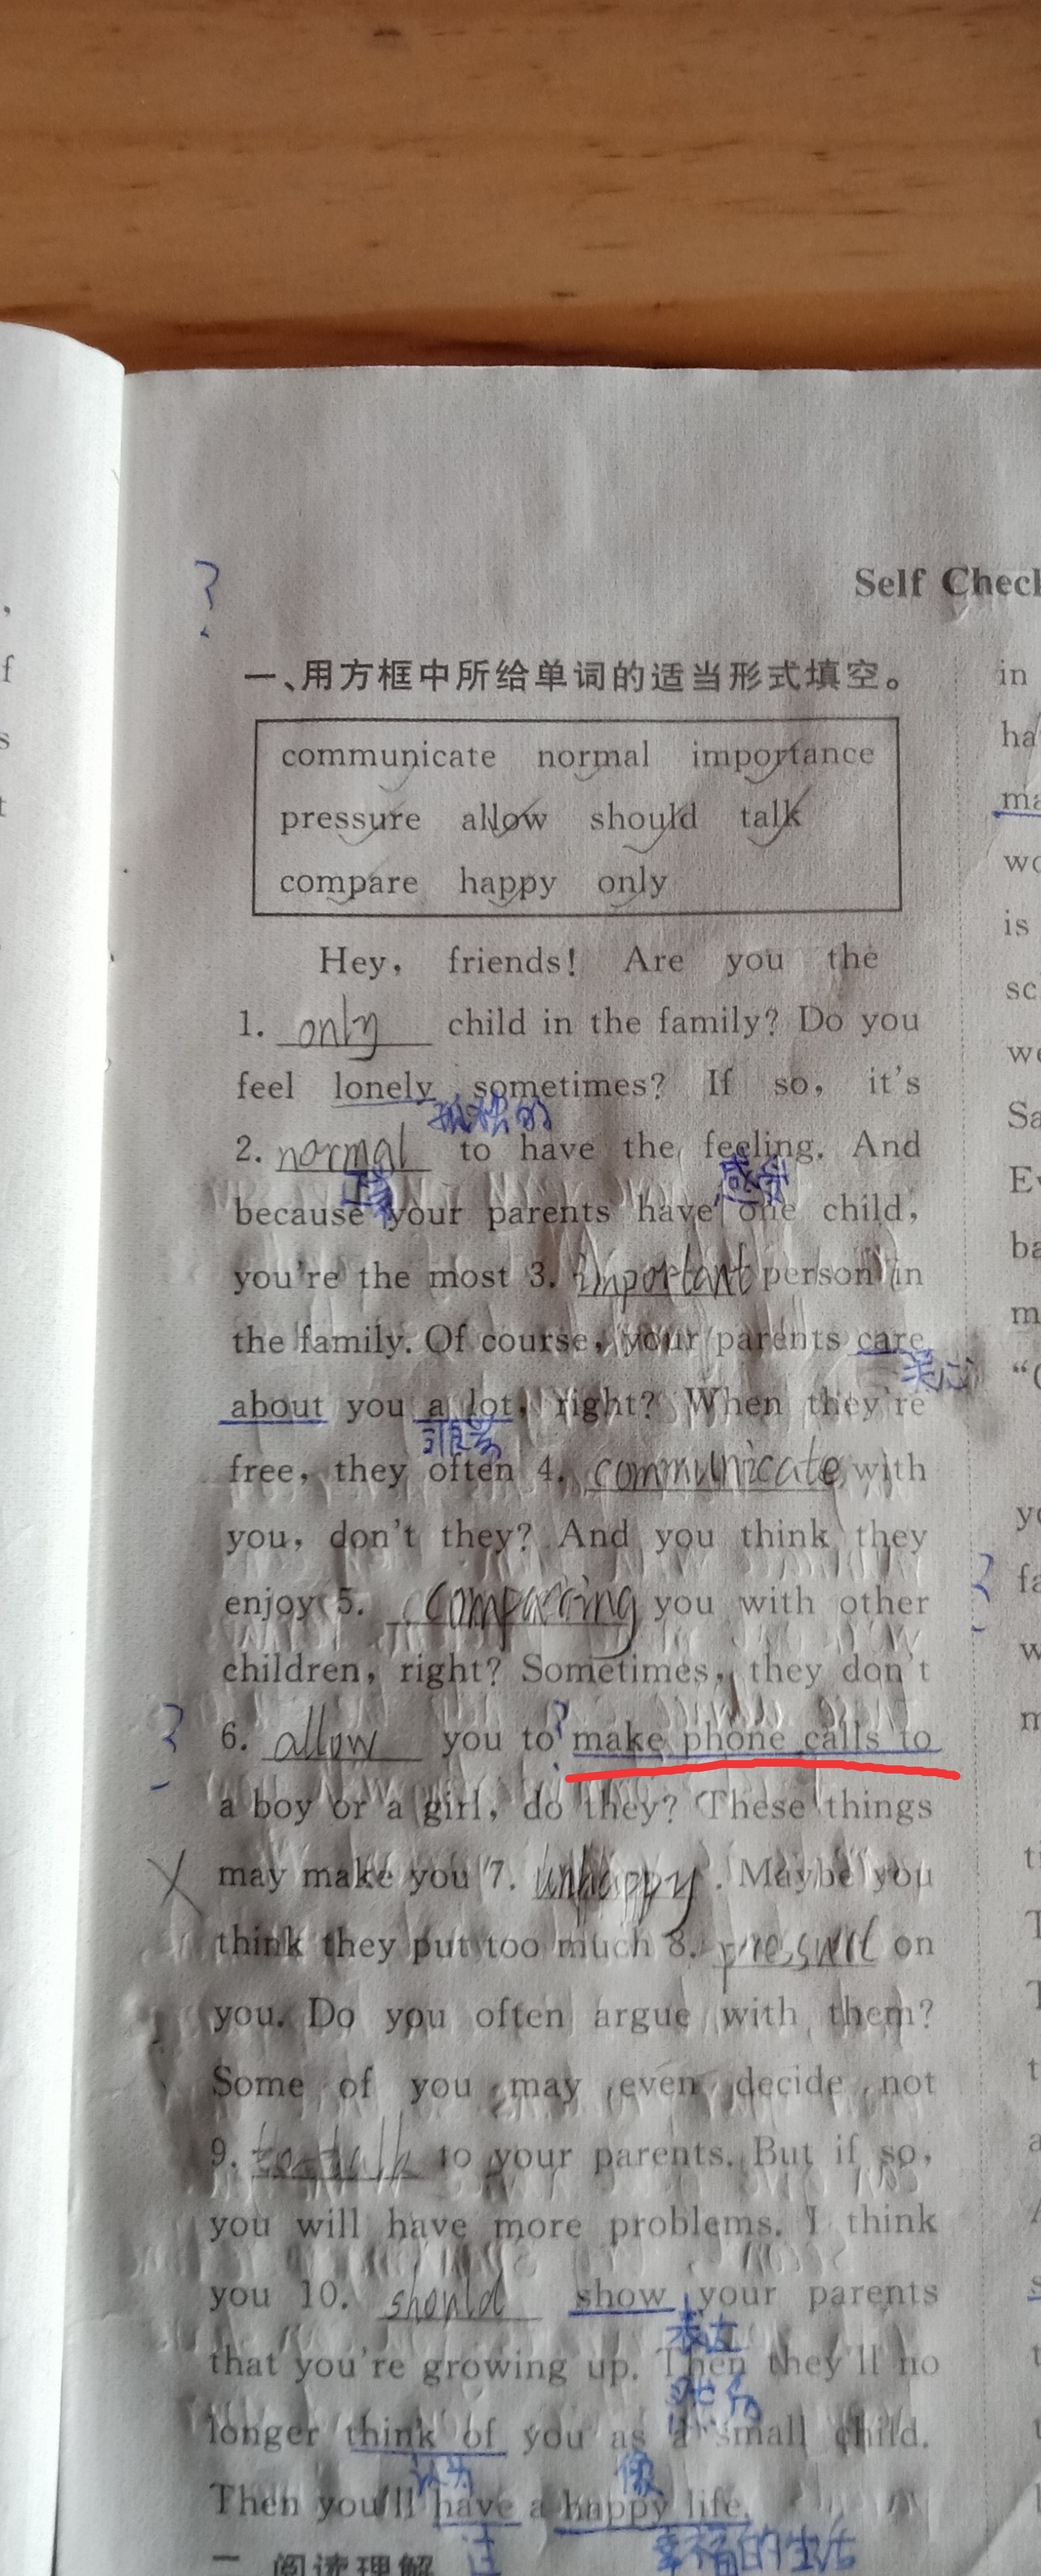 Self Check
一、用方框中所给单词的适当形式填空。
communicate normal importance
pressure allow should talk
compare happy only
Hey, friends! Are you the
1. only child in the family? Do you
feel lonely sometimes? If so, it's
孤独的
2. normal to have the feeling. And
because your parents have one child,
you're the most 3. important person in
the family. Of course, your parents care
关心
about you a lot, right? When they're
很多
free, they often 4. communicate with
you, don't they? And you think they
enjoy 5. comparing you with other
children, right? Sometimes, they don't
6. allow you to make phone calls to
a boy or a girl, do they? These things
may make you 7. unhappy. Maybe you
think they put too much 8. on
you. Do you often argue with them?
Some of you may even decide not
9. to talk to your parents. But if so,
you will have more problems. I think
you 10. should show your parents
that you're growing up. Then they'll no
longer think of you as a small child.
认为 像
Then you'll have a happy life.
过 幸福的生活
二、阅读理解